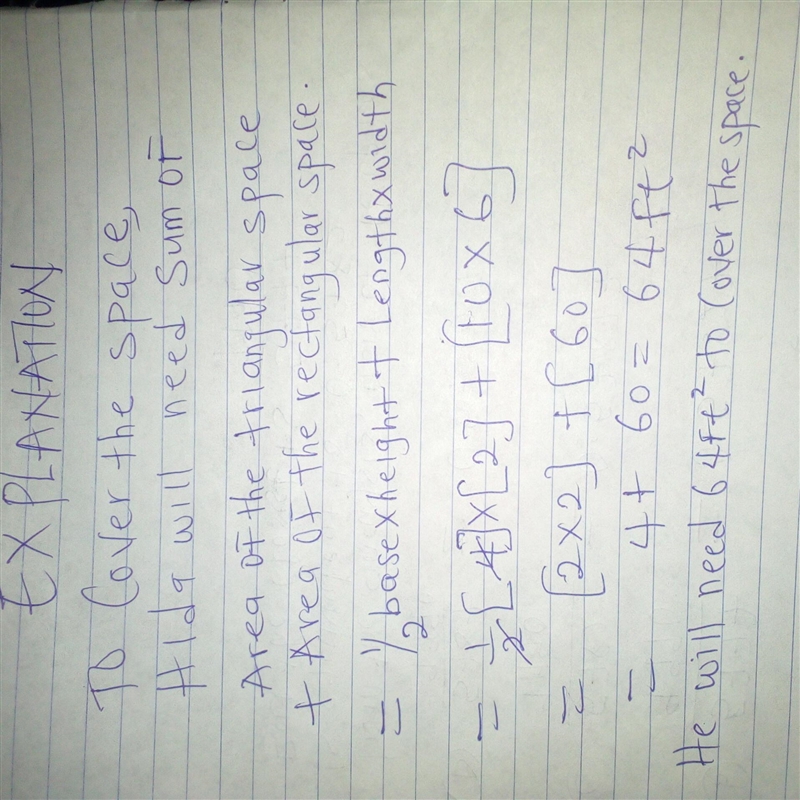 EXPLANATION
To Cover the space,
Alda will need Sum of
Area of the triangular space
+ Area of the rectangular space.
= 1/2 base x height + Length x width
= 1/2 [4] x [2] + [10 x 6]
= [2 x 2] + [60]
= 4 + 60 = 64 ft²
He will need 64 ft² to Cover the space.